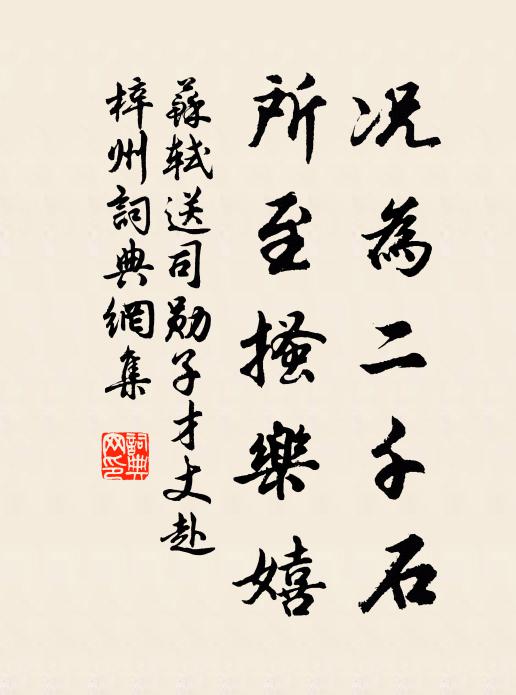 况為二千石
所至搔樂嬉
蘇軾送司勛子才丈赴
梓州詞典網集
詞典網印